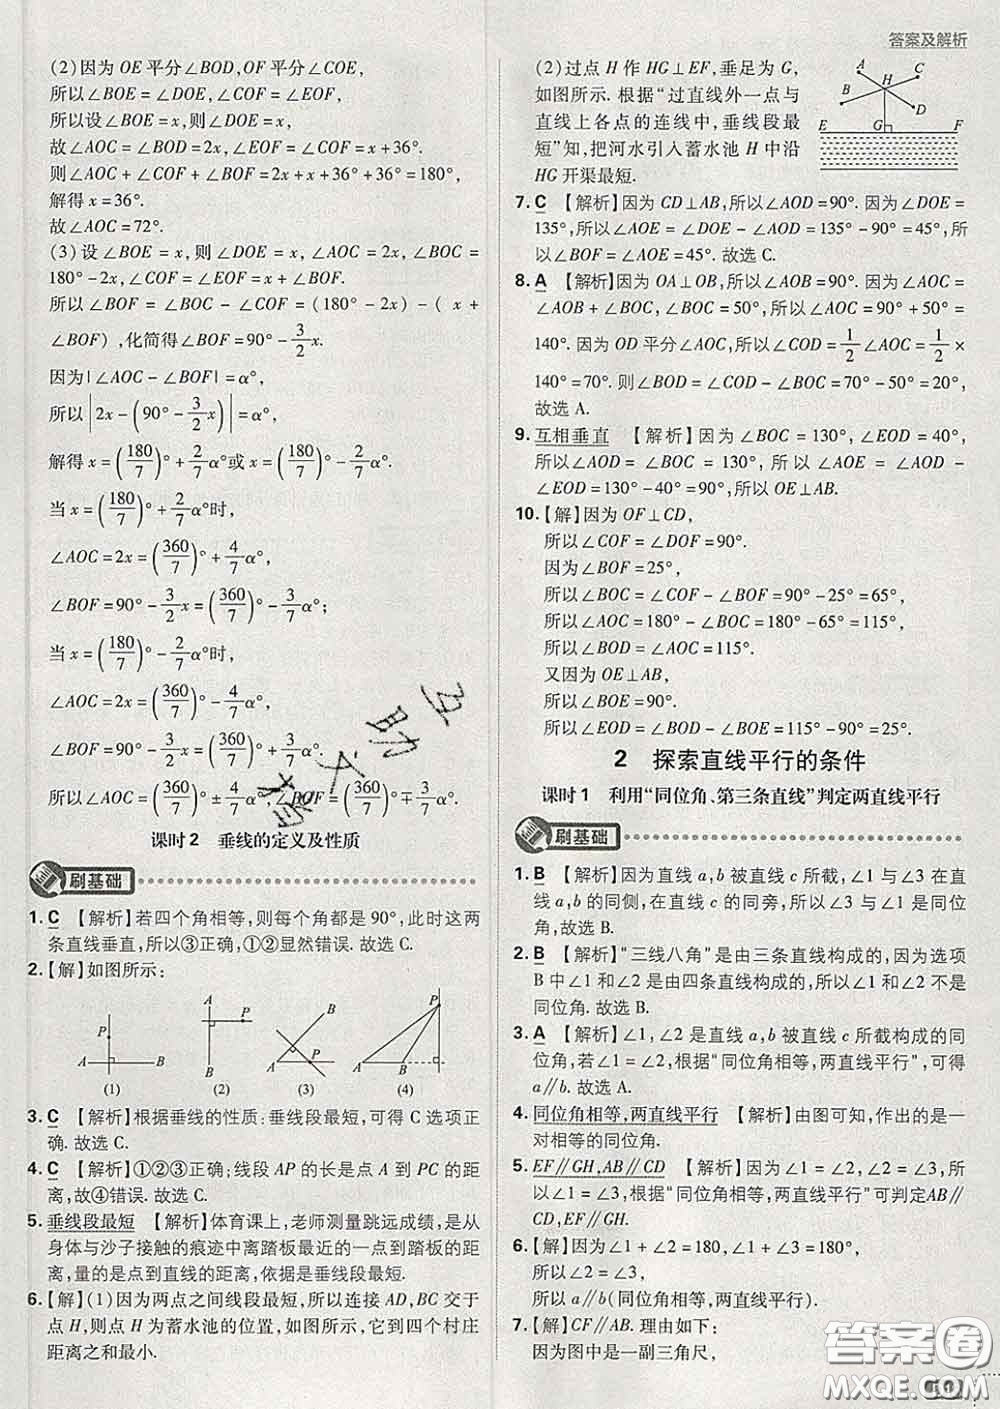 答案及解析
(2)因为 OE 平分∠BOD,OF 平分∠COE,
所以∠BOE=∠DOE,∠COF=∠EOF,
所以设∠BOE=x,则∠DOE=x,
故∠AOC=∠BOD=2x,∠EOF=∠COF=x+36°.
则∠AOC+∠COF+∠BOF=2x+x+36°+36°=180°,
解得 x=36°.
故∠AOC=72°.
(3)设∠BOE=x,则∠DOE=x,∠AOC=2x,∠BOC=
180°-2x,∠COF=∠EOF=x+∠BOF.
所以∠BOF=∠BOC-∠COF=(180°-2x)-(x+
∠BOF),化简得∠BOF=90°-3/2x.
因为|∠AOC-∠BOF|=α°,
所以|2x-(90°-3/2x)|=α°,
解得 x=(180/7)°+2/7α°或 x=(180/7)°-2/7α°.
当 x=(180/7)°+2/7α°时,
∠AOC=2x=(360/7)°+4/7α°,
∠BOF=90°-3/2x=(360/7)°-3/7α°;
当 x=(180/7)°-2/7α°时,
∠AOC=2x=(360/7)°-4/7α°,
∠BOF=90°-3/2x=(360/7)°+3/7α°.
所以∠AOC=(360/7)°±4/7α°,∠BOF=(360/7)°∓3/7α°.
课时2 垂线的定义及性质
刷基础
1. C 【解析】若四个角相等,则每个角都是 90°,此时这两
条直线垂直,所以③正确,①②显然错误. 故选 C.
2.【解】如图所示:
P A B (1)
A P B (2)
B A P (3)
P A B (4)
3. C 【解析】根据垂线的性质:垂线段最短,可得 C 选项正
确. 故选 C.
4. C 【解析】①②③正确;线段 AP 的长是点 A 到 PC 的距
离,故④错误. 故选 C.
5. 垂线段最短 【解析】体育课上,老师测量跳远成绩,是从
身体与沙子接触的痕迹中离踏板最近的一点到踏板的距
离,量的是点到直线的距离,依据是垂线段最短.
6.【解】(1)因为两点之间线段最短,所以连接 AD,BC 交于
点 H,则点 H 为蓄水池的位置,如图所示,它到四个村庄
距离之和最小.
(2)过点 H 作 HG⊥EF,垂足为 G,
如图所示. 根据“过直线外一点与
直线上各点的连线中,垂线段最
短”知,把河水引入蓄水池 H 中沿
HG 开渠最短.
A C H B D E G F
7. C 【解析】因为 CD⊥AB,所以∠AOD=90°. 因为∠DOE=
135°,所以∠AOE=∠DOE-∠AOD=135°-90°=45°,所
以∠BOF=∠AOE=45°. 故选 C.
8. A 【解析】因为 OA⊥OB,所以∠AOB=90°. 因为∠AOC=
∠AOB+∠BOC,∠BOC=50°,所以∠AOC=90°+50°=
140°. 因为 OD 平分∠AOC,所以∠COD=1/2∠AOC=1/2×
140°=70°. 则∠BOD=∠COD-∠BOC=70°-50°=20°,
故选 A.
9. 互相垂直 【解析】因为∠BOC=130°,∠EOD=40°,
所以∠AOD=∠BOC=130°,所以∠AOE=∠AOD-
∠EOD=130°-40°=90°,所以 OE⊥AB.
10.【解】因为 OF⊥CD,
所以∠COF=∠DOF=90°.
因为∠BOF=25°,
所以∠BOC=∠COF-∠BOF=90°-25°=65°,
所以∠AOC=180°-∠BOC=180°-65°=115°,
所以∠BOD=∠AOC=115°.
又因为 OE⊥AB,
所以∠BOE=90°.
所以∠EOD=∠BOD-∠BOE=115°-90°=25°.
2 探索直线平行的条件
课时1 利用“同位角、第三条直线”判定两直线平行
刷基础
1. B 【解析】因为直线 a,b 被直线 c 所截,∠1 与∠3 在直
线 a,b 的同侧,在直线 c 的同旁,所以∠1 与∠3 是同位
角,故选 B.
2. B 【解析】“三线八角”是由三条直线构成的,因为选项
B 中∠1 和∠2 是由四条直线构成的,所以∠1 和∠2 不是
同位角. 故选 B.
3. A 【解析】∠1,∠2 是直线 a,b 被直线 c 所截构成的同
位角,若∠1=∠2,根据“同位角相等,两直线平行”,可得
a∥b. 故选 A.
4. 同位角相等,两直线平行 【解析】由图可知,作出的是一
对相等的同位角.
5. EF∥GH,AB∥CD 【解析】因为∠1=∠2=∠3,所
以∠1=∠3,根据“同位角相等,两直线平行”可判定AB∥
CD,EF∥GH.
6.【解】因为∠1+∠2=180,∠1+∠=180°,
所以∠2=∠3,
所以 a∥b(同位角相等,两直线平行).
7.【解】CF∥AB. 理由如下:
因为图中是一副三角尺,
答案圈
MXQE.COM